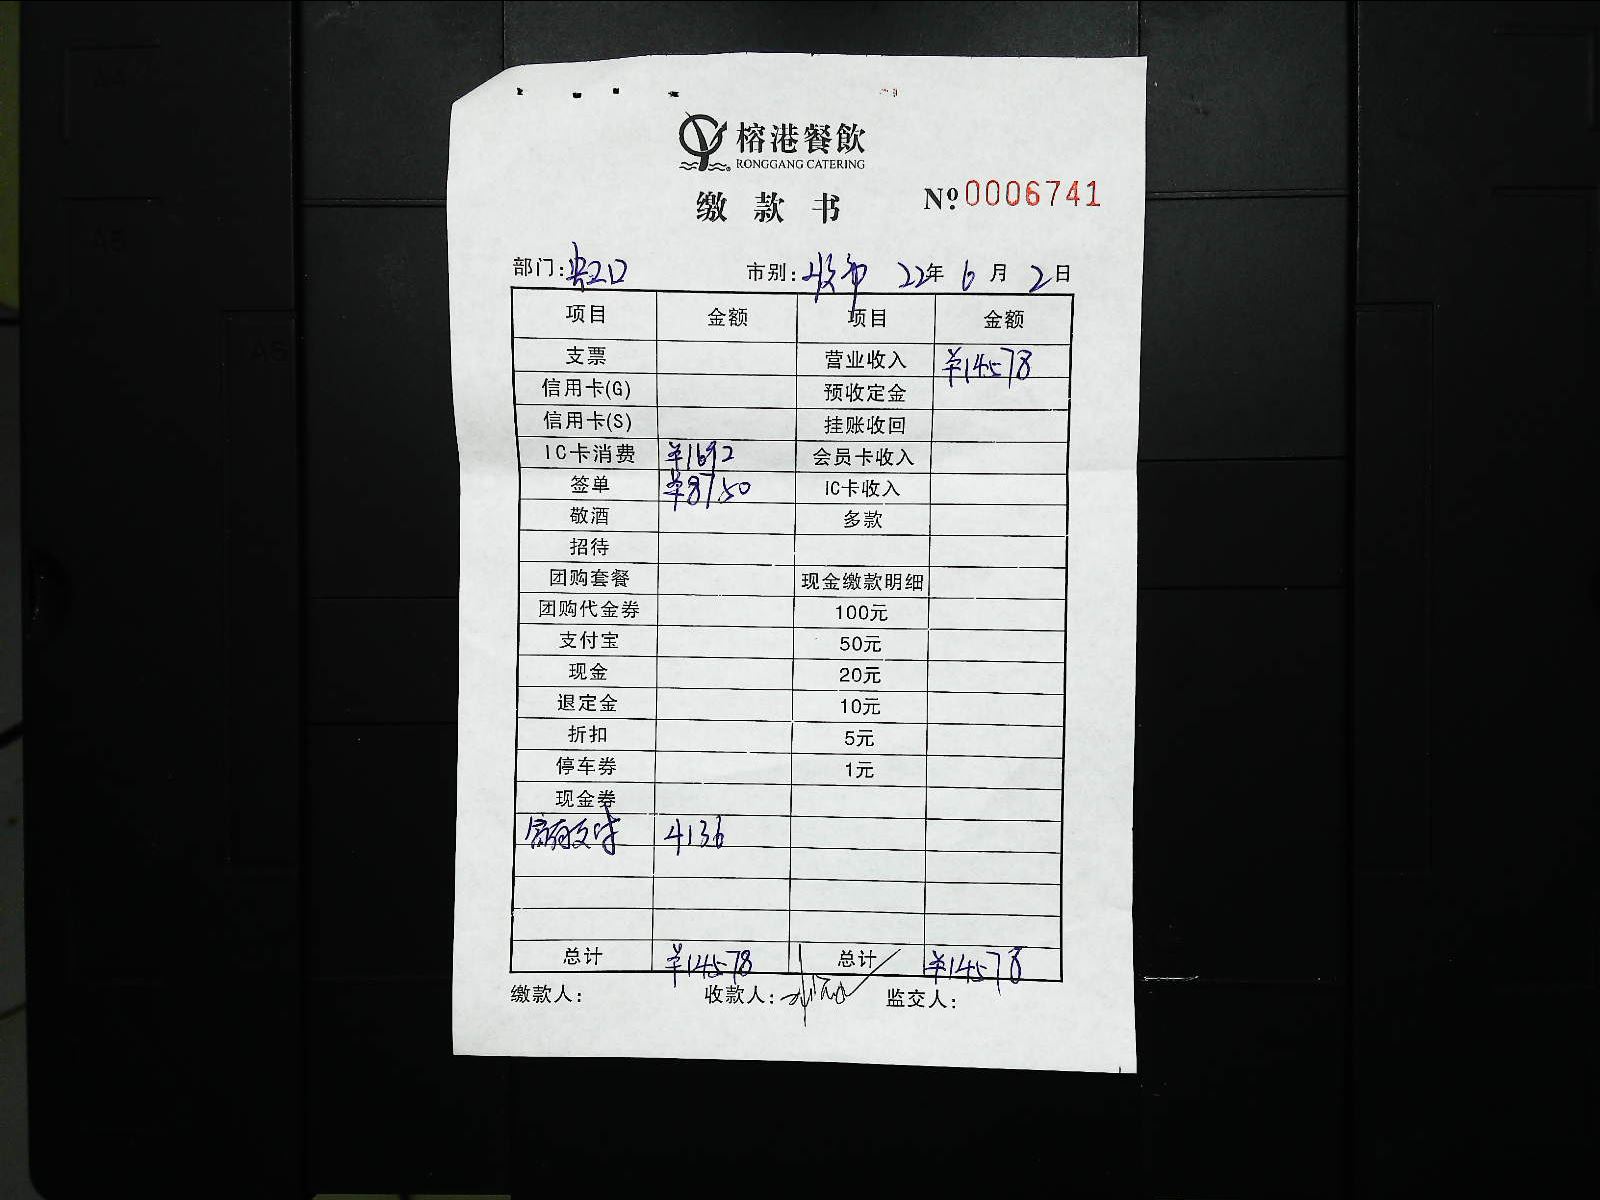 榕港餐飲
RONGGANG CATERING
缴款书 №0006741
部门: 市别: 22年6月2日
项目 金额 项目 金额
支票 营业收入 ¥14578
信用卡(G) 预收定金
信用卡(S) 挂账收回
IC卡消费 ¥1692 会员卡收入
签单 ¥8750 IC卡收入
敬酒 多款
招待
团购套餐 现金缴款明细
团购代金券 100元
支付宝 50元
现金 20元
退定金 10元
折扣 5元
停车券 1元
现金券
支付 4136
总计 ¥14578 总计 ¥14578
缴款人: 收款人: 监交人: